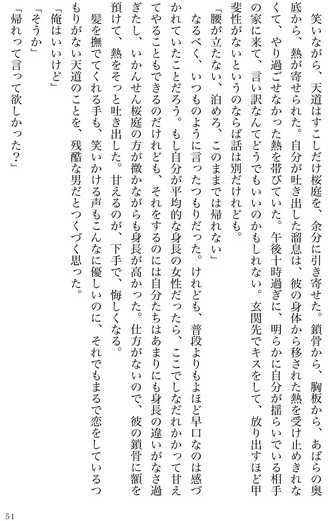 笑いながら、天道はすこしだけ桜庭を、余分に引き寄せた。鎖骨から、胸板から、あばらの奥
底から、熱が寄せられた。自分が吐き出した溜息は、彼の身体から移された熱を受け止めきれな
くて、やり過ごせなかった熱を帯びていた。午後十時過ぎに、明らかに自分が揺らいでいる相手
の家に来て、言い訳なんてどうでもいいのかもしれない。玄関先でキスをして、放り出すほど甲
斐性がないというのならば話は別だけれども。
「腰が立たない、泊めろ、このままでは帰れない」
なるべく、いつものように言ったつもりだった。けれども、普段よりもよほど早口なのは感づ
かれていたことだろう。もし自分が平均的な身長の女性だったら、ここでしなだれかかって甘え
てやることもできるのだけれども、それをするのには自分たちはあまりにも身長の違いがなさ過
ぎたし、いかんせん桜庭の方が微かながらも身長が高かった。仕方がないので、彼の鎖骨に額を
預けて、熱をそっと吐き出した。甘えるのが、下手で、悔しくなる。
髪を撫でてくれる手も、笑いかける声もこんなに優しいのに、それでもまるで恋をしているつ
もりがない天道のことを、残酷な男だとつくづく思った。
「俺はいいけど」
「そうか」
「帰れって言って欲しかった？」
51